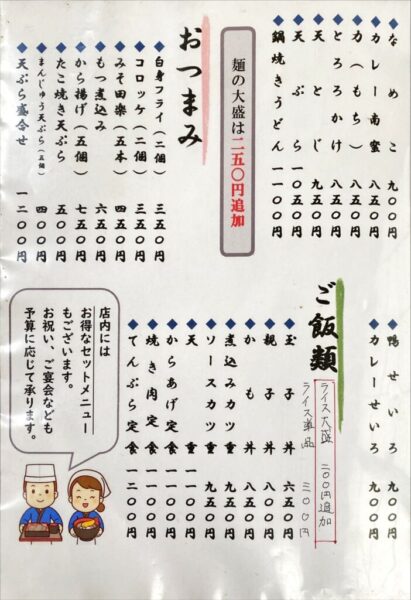 ◆なめこ 九〇〇円
◆カレー南蛮 八五〇円
◆力(もち) 八五〇円
◆とろろ 八五〇円
◆天とじ 九五〇円
◆天ぷら 一〇五〇円
◆鍋焼きうどん 一一〇〇円
麺の大盛は二五〇円追加
おつまみ
◆白身フライ(二個) 三五〇円
◆コロッケ(二個) 三五〇円
◆みそ田楽(五本) 四五〇円
◆もつ煮込み 六五〇円
◆から揚げ(五個) 七五〇円
◆たこ焼き天ぷら 五〇〇円
◆まんじゅう天ぷら(五個) 四〇〇円
◆天ぷら盛合せ 一二〇〇円
◆鴨せいろ 九〇〇円
◆カレーせいろ 九〇〇円
ご飯類
ライス大盛 二〇〇円追加
ライス単品 三〇〇円
◆玉子丼 六五〇円
◆親子丼 八〇〇円
◆かも丼 八五〇円
◆煮込みカツ重 九五〇円
◆ソースカツ重 九五〇円
◆天重 一一〇〇円
◆からあげ定食 一一〇〇円
◆焼き肉定食 一一〇〇円
◆てんぷら定食 一二〇〇円
店内には
お得なセットメニュー
もございます。
お祝い、ご宴会なども
予算に応じて承ります。